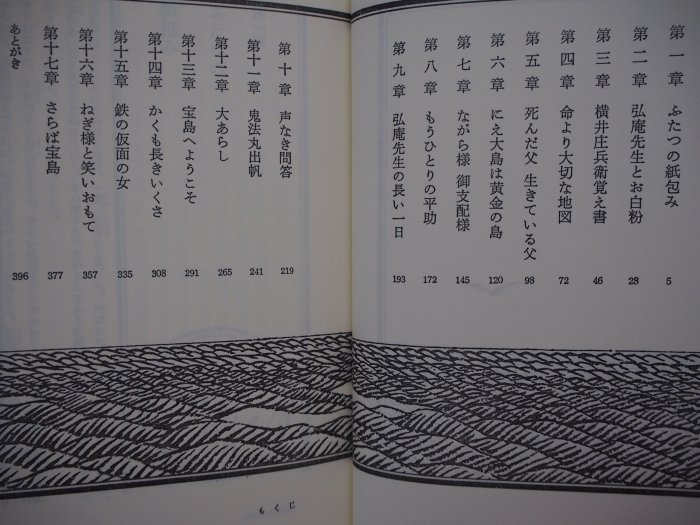 第一章 ふたつの紙包み 5
第二章 弘庵先生とお白粉 28
第三章 横井庄兵衛覚え書 46
第四章 命より大切な地図 72
第五章 死んだ父 生きている父 98
第六章 にえ大島は黄金の島 120
第七章 ながら様 御支配様 145
第八章 もうひとりの平助 172
第九章 弘庵先生の長い一日 193
第十章 声なき問答 219
第十一章 鬼法丸出帆 241
第十二章 大あらし 265
第十三章 宝島へようこそ 291
第十四章 かくも長きいくさ 308
第十五章 鉄の仮面の女 335
第十六章 ねぎ様と笑いおもて 357
第十七章 さらば宝島 377
あとがき 396
もくじ